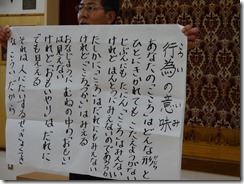 行為の意味
こうい いみ
あなたの「こころ」はどんな形と
ひとにきかれても こたえようがない
じぶんにも たにんにも こころはみえない
けれど ほんとうにみえないのであろうか
たしかに こころはだれにもみえない
けれど こころづかいはみえる
おなじように むねのなかのおもい
は見えない
けれど「おもいやり」はだれに
でも見える
それは人にたいするせっきょくてき
な こういだから